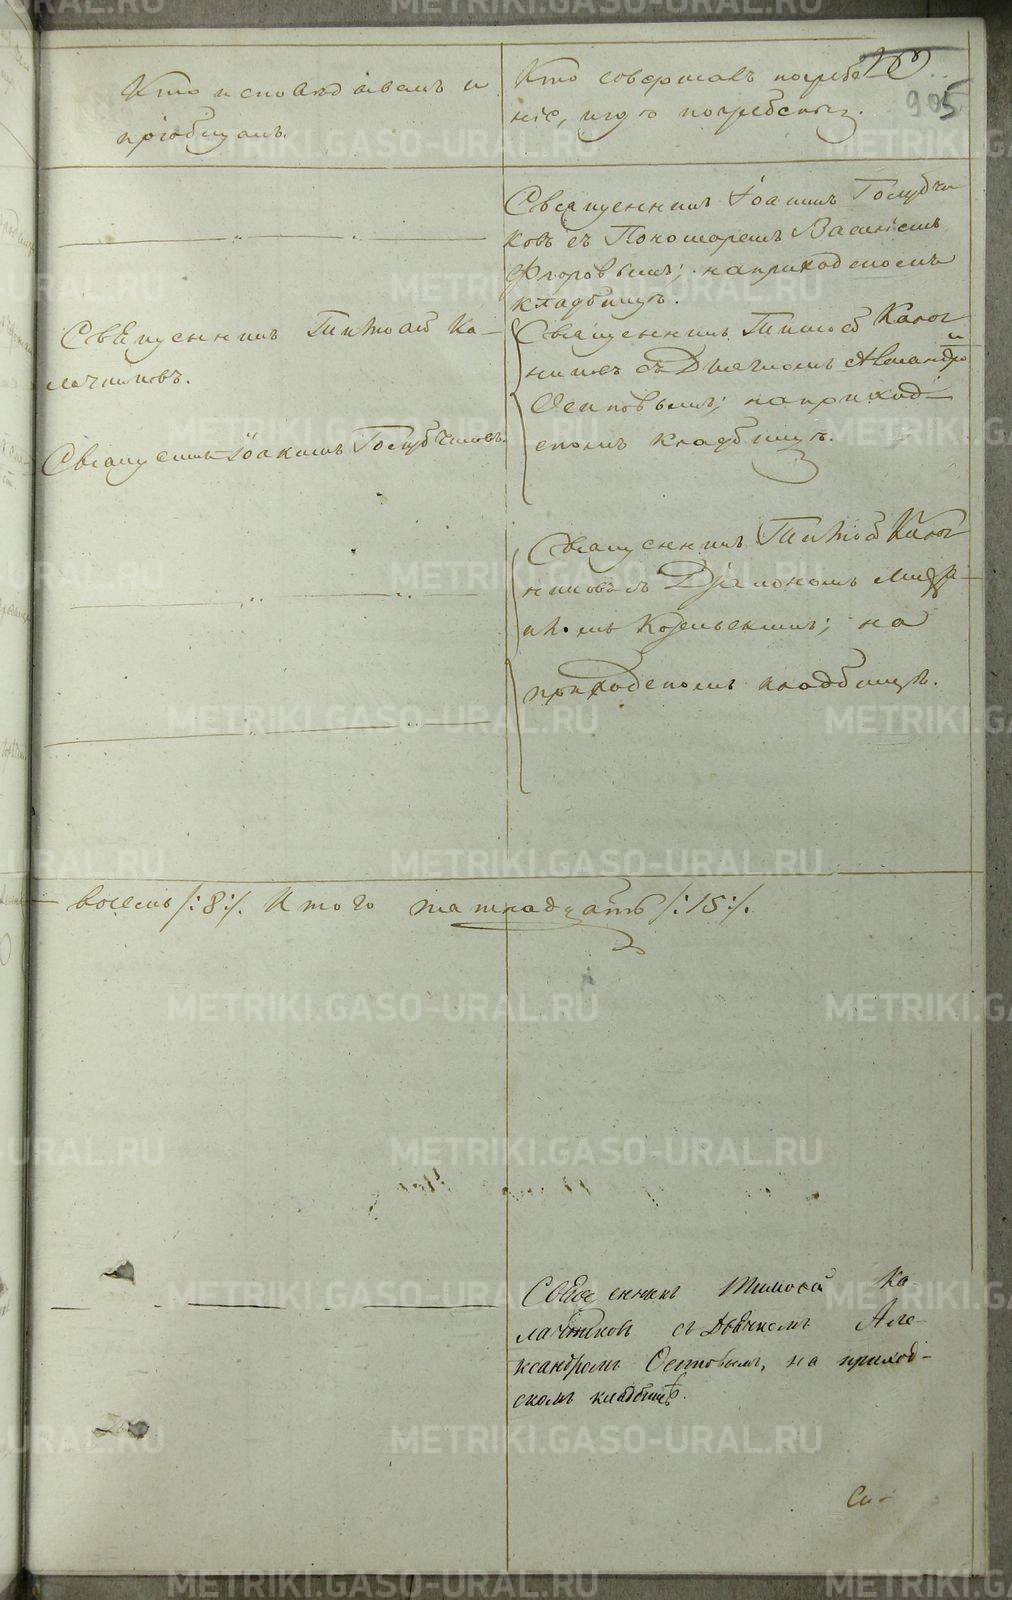 Кто исповѣдывалъ и
пріобщалъ.
Кто совершалъ погребе
ніе, и гдѣ погребены.
905
Священникъ Іоакимъ Голубчи
ковъ съ Пономаремъ Василіемъ
Флоровымъ; на приходскомъ
кладбищѣ.
Священникъ Тимоѳей Ка-
лачниковъ.
Священникъ Тимоѳей Калач
никовъ съ Дьячкомъ Александро
Осиповымъ; на приход-
скомъ кладбищѣ.
Священникъ Іоакимъ Голубчиковъ.
Священникъ Тимоѳей Калач
никовъ съ Діакономъ
Козельскимъ; на
приходскомъ кладбищѣ.
восемь /:8:/. Итого пятнадцать /:15:/.
Священникъ Тимоѳей Ка
лачниковъ съ Дьячкомъ Але-
ксандромъ Осиповымъ, на приход-
скомъ кладбищѣ.
Си-
METRIKI.GASO-URAL.RU